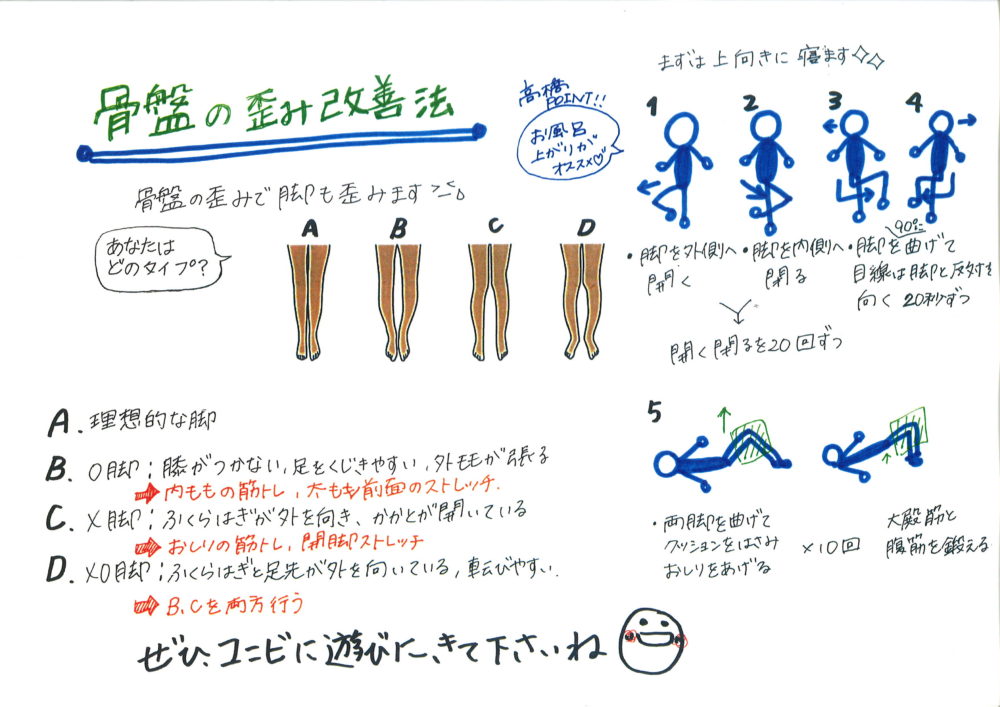 骨盤の歪み改善法
骨盤の歪みで脚も歪みます
あなたは
どのタイプ?
A
B
C
D
A. 理想的な脚
B. O脚;膝がつかない,足をくじきやすい,外ももが張る
内ももの筋トレ,太もも前面のストレッチ.
C. X脚;ふくらはぎが外を向き、かかとが開いている
おしりの筋トレ,開脚ストレッチ
D. XO脚;ふくらはぎと足先が外を向いている,転びやすい.
B.Cを両方行う
ぜひ、コニビに遊びに、きて下さいね
高橋
POINT!!
お風呂
上がりが
オススメ♡
まずは上向きに寝ます✧✧
1
2
3
4
・脚を外側へ
開く
・脚を内側へ
閉る
開く閉るを20回ずつ
90°に
・脚を曲げて
目線は脚と反対を
向く 20秒ずつ
5
・両脚を曲げて
クッションをはさみ
おしりをあげる
×10回
大殿筋と
腹筋を鍛える